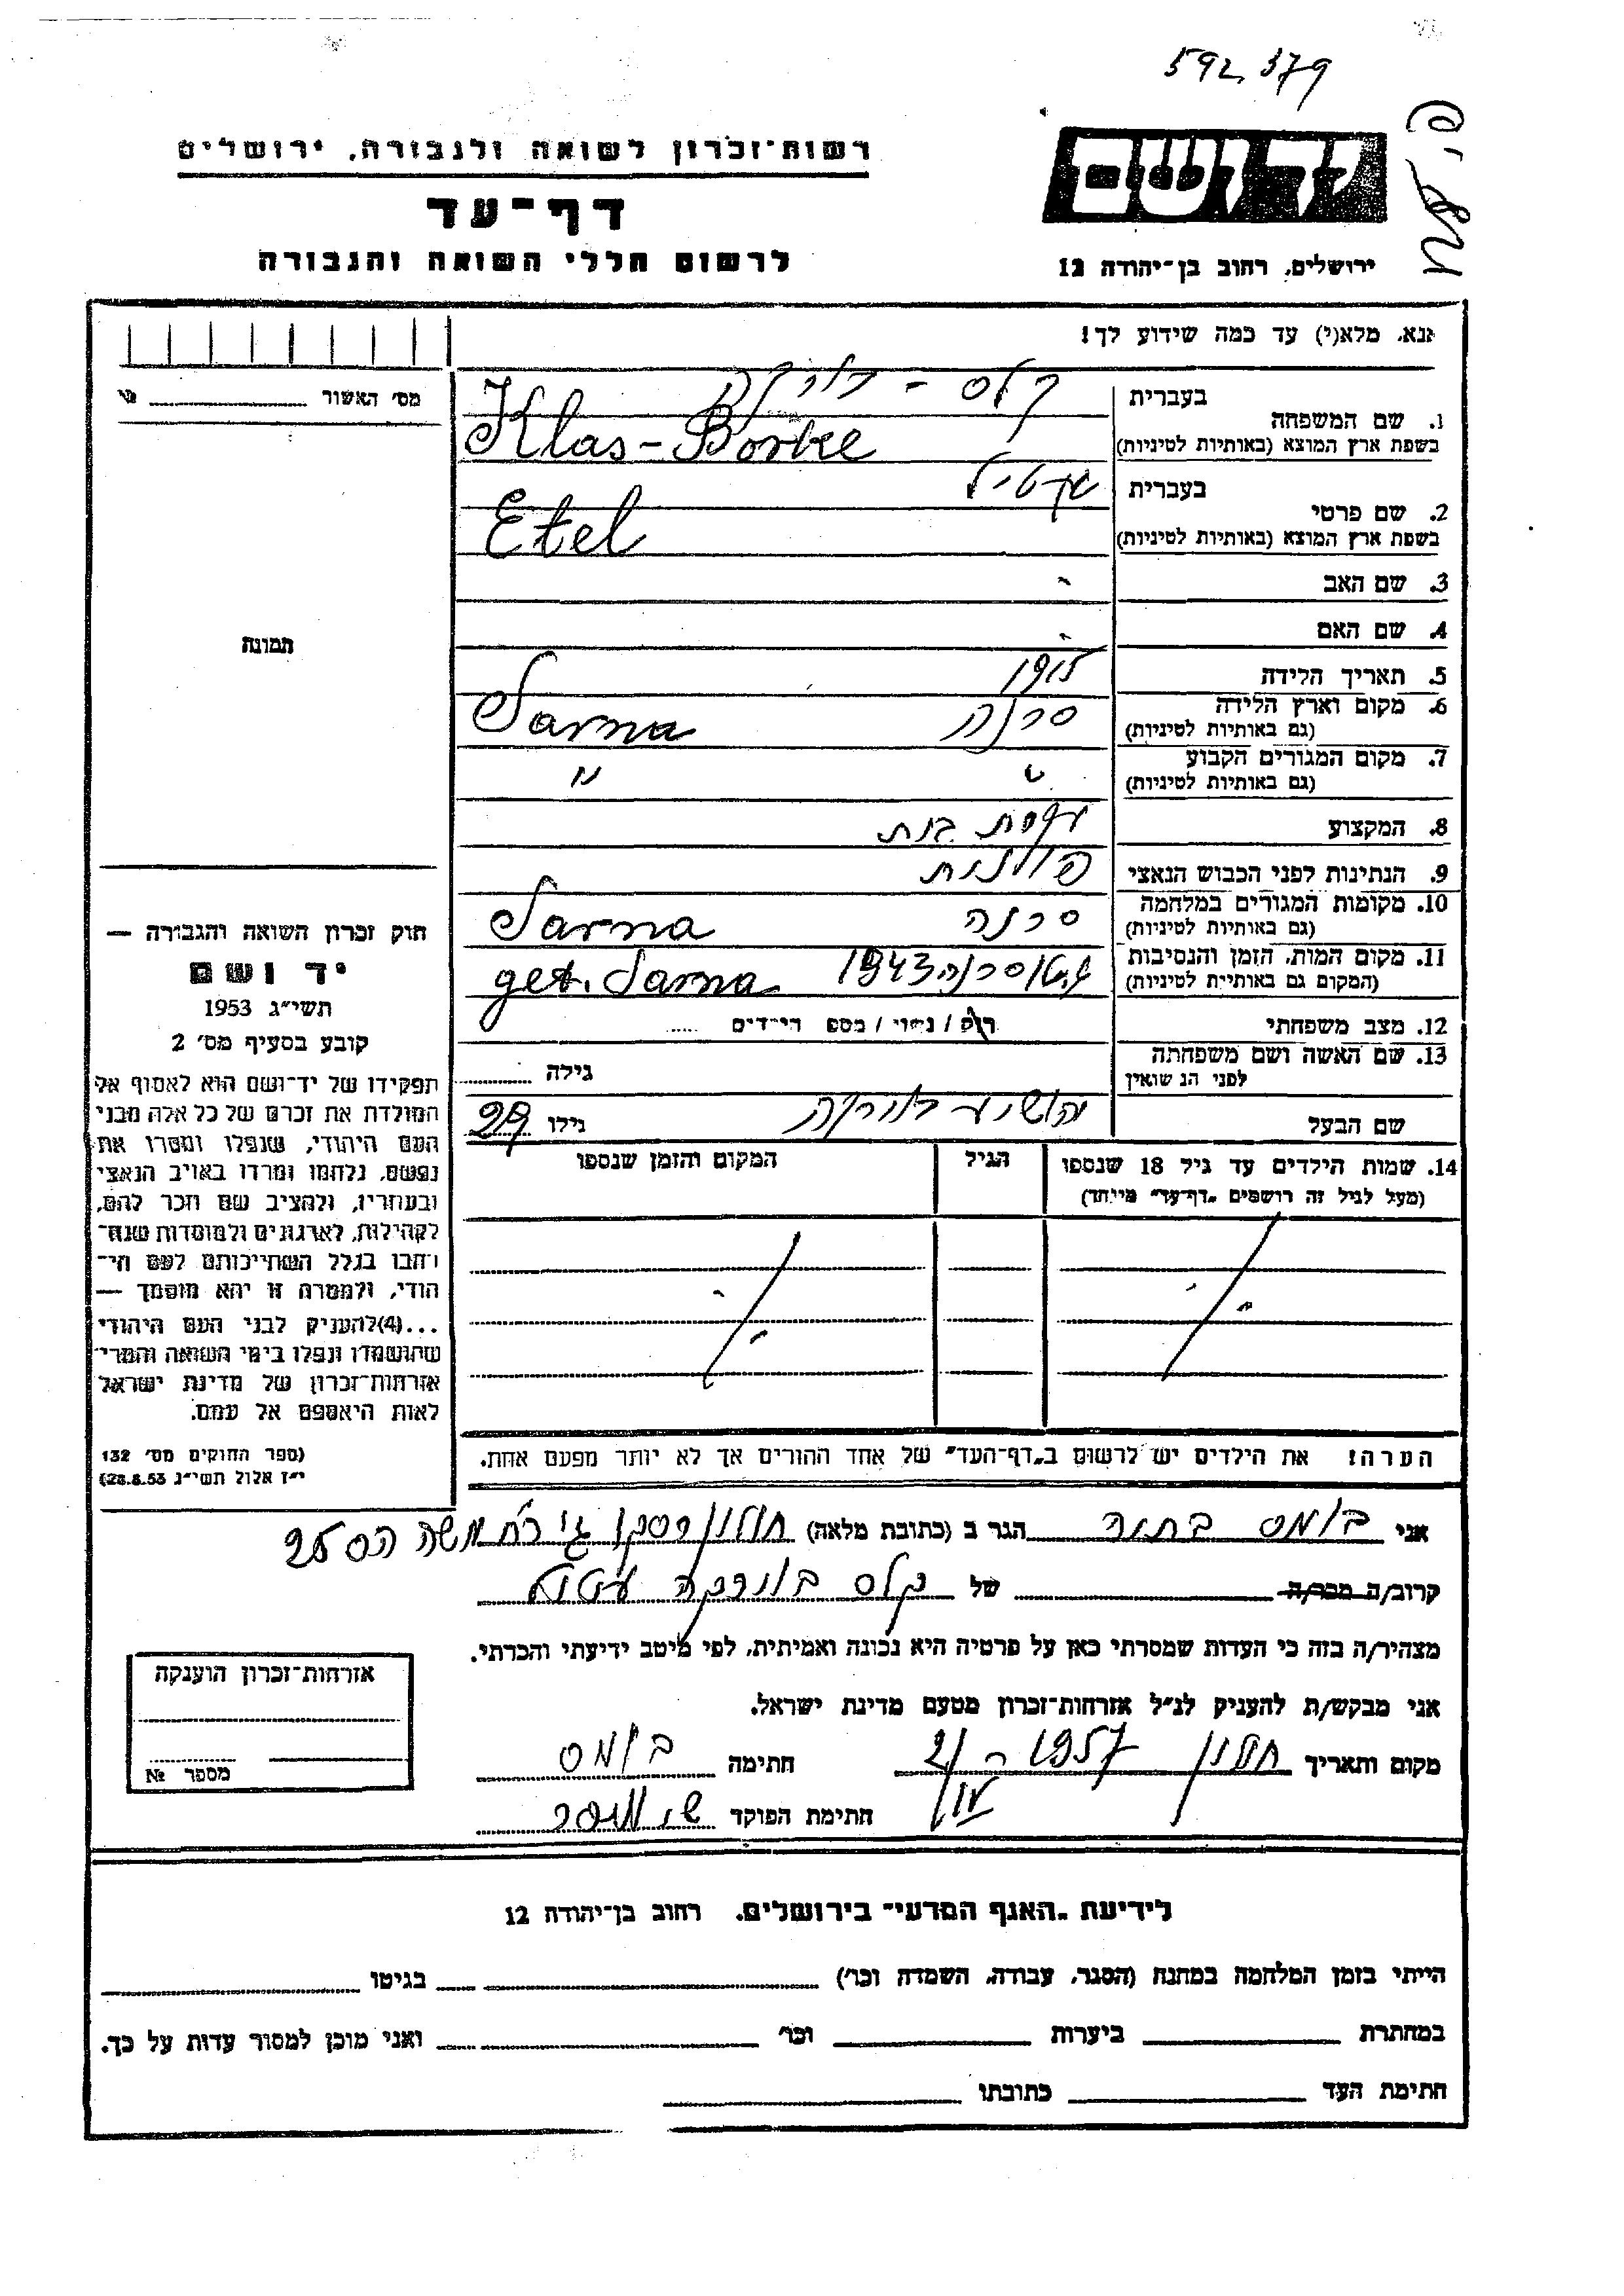 592.379
רשות־זכרון לשואה ולגבורה, ירושלים
יד ושם
דף־עד
לרשום חללי השואה והגבורה
ירושלים, רחוב בן־יהודה 12
אנא, מלא(י) עד כמה שידוע לך!
מס' האשור
בעברית
קלס - בורקה
1. שם המשפחה
בשפת ארץ המוצא (באותיות לטיניות)
Klas-Borke
בעברית
2. שם פרטי
בשפת ארץ המוצא (באותיות לטיניות)
Etel
3. שם האב -
4. שם האם -
תמונה
5. תאריך הלידה 1915
6. מקום וארץ הלידה
(גם באותיות לטיניות)
סרנה Sarna
7. מקום המגורים הקבוע
(גם באותיות לטיניות)
" "
8. המקצוע עקרת בית
9. הנתינות לפני הכבוש הנאצי פולנית
10. מקומות המגורים במלחמה
(גם באותיות לטיניות)
סרנה Sarna
11. מקום המות, הזמן והנסיבות
(המקום גם באותיות לטיניות)
גיטו סרנה 1943 get. Sarna
12. מצב משפחתי רווק / נשוי / מספר הילדים
13. שם האשה ושם משפחתה
לפני הנישואין
גילה
שם הבעל יהושע בורקה גילו 29
14. שמות הילדים עד גיל 18 שנספו
(מעל לגיל זה רושמים "דף־עד" מיוחד)
הגיל
המקום והזמן שנספו
הערה! את הילדים יש לרשום ב"דף־העד" של אחד ההורים אך לא יותר מפעם אחת.
חוק זכרון השואה והגבורה —
יד ושם
תשי"ג 1953
קובע בסעיף מס' 2
תפקידו של יד־ושם הוא לאסוף אל
המולדת את זכרם של כל אלה מבני
העם היהודי, שנפלו ומסרו את
נפשם, נלחמו ומרדו באויב הנאצי
ובעוזריו, ולהציב שם וזכר להם,
לקהילות, לארגונים ולמוסדות שנח־
רבו בגלל השתייכותם לעם הי־
הודי, ולמטרה זו יהא מוסמך —
...(4)להעניק לבני העם היהודי
שהושמדו ונפלו בימי השואה והמרי־
אזרחות־זכרון של מדינת ישראל
לאות היאספם אל עמם.
(ספר החוקים מס' 132
י"ז אלול תשי"ג 28.8.53)
אני בומס בתיה הגר ב (כתובת מלאה) חולון
קרוב/ה מכר/ה של קלס בורקה
מצהיר/ה בזה כי העדות שמסרתי כאן על פרטיה היא נכונה ואמיתית, לפי מיטב ידיעתי והכרתי.
אני מבקש/ת להעניק לנ"ל אזרחות־זכרון מטעם מדינת ישראל.
מקום ותאריך חולון 1957 חתימה בומס
חתימת הפוקד
אזרחות־זכרון הוענקה
מספר №
לידיעת "האגף המדעי" בירושלים, רחוב בן־יהודה 12
הייתי בזמן המלחמה במחנה (הסגר, עבודה, השמדה וכו') בגיטו
במחתרת ביערות וכו' ואני מוכן למסור עדות על כך.
חתימת העד כתובתו